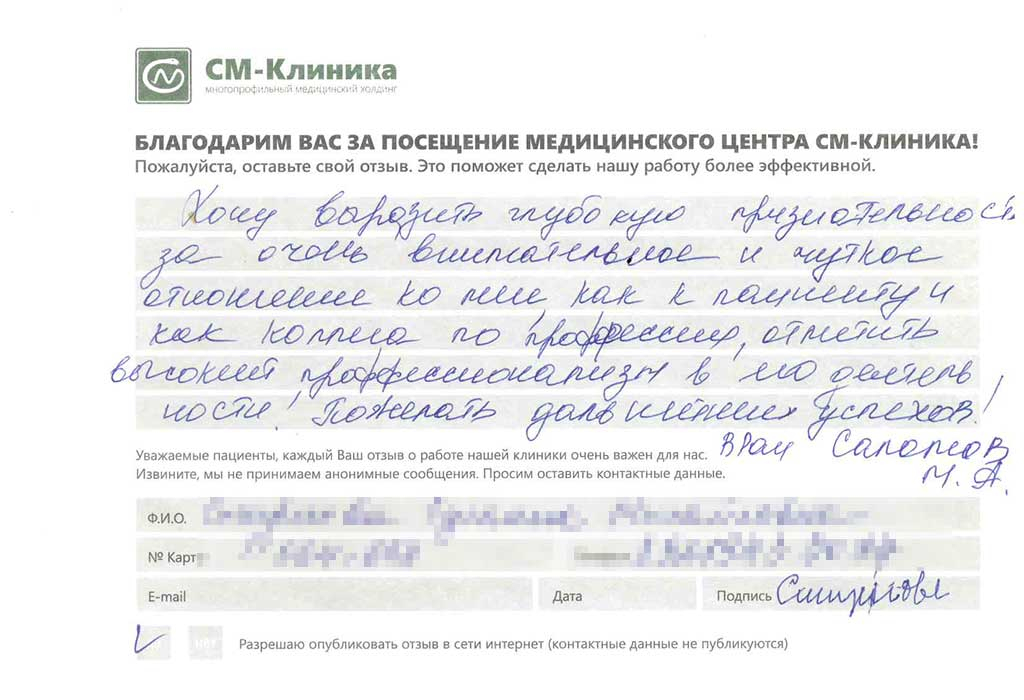 СМ-Клиника
многопрофильный медицинский холдинг
БЛАГОДАРИМ ВАС ЗА ПОСЕЩЕНИЕ МЕДИЦИНСКОГО ЦЕНТРА СМ-КЛИНИКА!
Пожалуйста, оставьте свой отзыв. Это поможет сделать нашу работу более эффективной.
Хочу выразить глубокую признательность
за очень внимательное и чуткое
отношение ко мне, как к пациенту и
как коллега по профессии, отметить
высокий профессионализм в его деятель
ности! Пожелать дальнейших успехов!
Врач
М. А.
Уважаемые пациенты, каждый Ваш отзыв о работе нашей клиники очень важен для нас.
Извините, мы не принимаем анонимные сообщения. Просим оставить контактные данные.
Ф.И.О.
№ Карт
E-mail
Дата
Подпись
нет
Разрешаю опубликовать отзыв в сети интернет (контактные данные не публикуются)